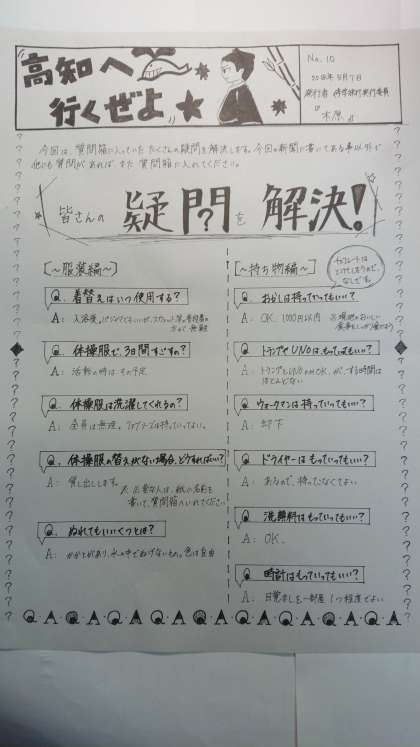 高知へ
行くぜよ
No.10
2018年5月7日
発行者 修学旅行実行委員
木原
今回は、質問箱に入っていたたくさんの疑問を解決します。今回の新聞に書いてある事以外で、
他にも質問があれば、また質問箱に入れてください。
皆さんの疑問を解決!
[~服装編~]
Q. 着替えはいつ使用する?
A: 入浴後。
Q. 体操服で、3日間すごすの?
A: 活動の時はその予定
Q. 体操服は洗濯してくれるの?
A: 全員は無理。
Q. 体操服の替えがない場合、どうすればいい?
A: 貸し出しします。
必要な人は、紙に名前を
書いて、質問箱へいれてください
Q. ぬれてもいいくつとは?
A: かかとがあり、水の中でぬげないもの。色は自由
[~持ち物編~]
チョコレートは
とけてしまうので、
なしです。
Q. おかしは持っていってもいい?
A: OK. 1000円以内
Q. トランプやUNOは、もってってもいい?
A: トランプもUNOもOK。が、する時間は
ほとんどない
Q. ウォークマンは持っていってもいい?
A: 却下
Q. ドライヤーはもっていってもいい?
A: あるので、持ってこなくてよい
Q. 洗顔料はもっていってもいい?
A: OK.
Q. 時計はもっていってもいい?
A: 目覚ましを一部屋1つ程度でよい
Q A Q A Q A Q A Q A Q A Q A Q A Q A